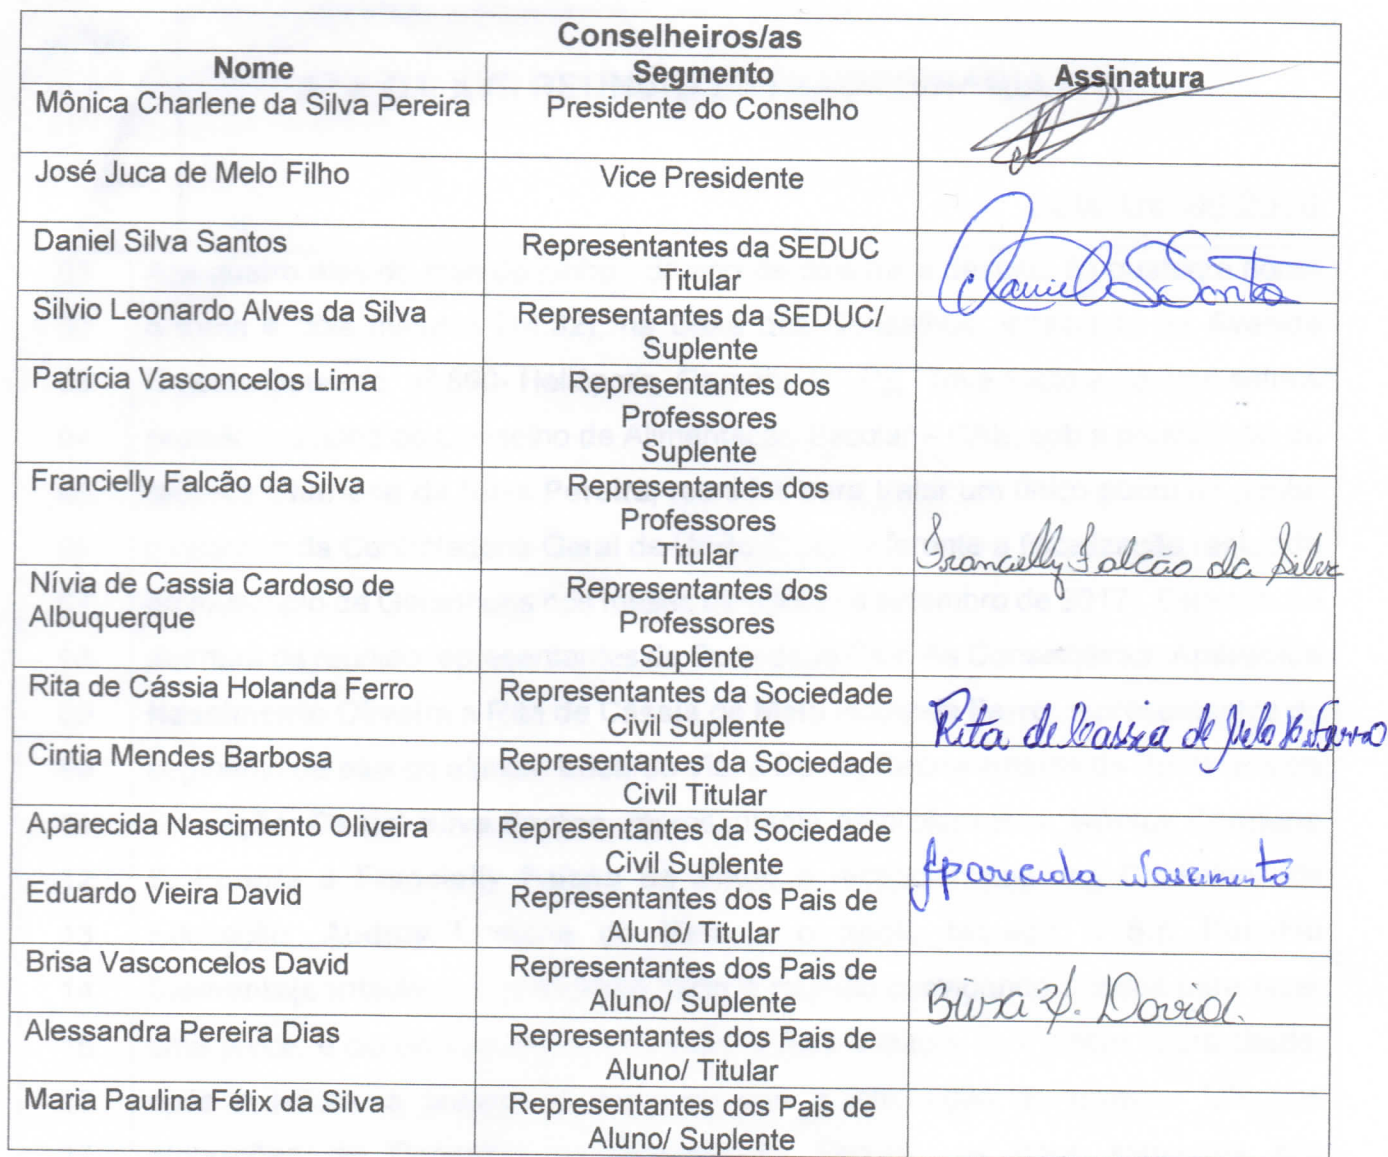 Conselheiros/as
Nome Segmento Assinatura
Mônica Charlene da Silva Pereira Presidente do Conselho
José Juca de Melo Filho Vice Presidente
Daniel Silva Santos Representantes da SEDUC
Titular
Daniel S Santos
Silvio Leonardo Alves da Silva Representantes da SEDUC/
Suplente
Patrícia Vasconcelos Lima Representantes dos
Professores
Suplente
Francielly Falcão da Silva Representantes dos
Professores
Titular
Francielly Falcão da Silva
Nívia de Cassia Cardoso de Representantes dos
Albuquerque Professores
Suplente
Rita de Cássia Holanda Ferro Representantes da Sociedade
Civil Suplente
Rita de Cassia de Melo H. Ferro
Cintia Mendes Barbosa Representantes da Sociedade
Civil Titular
Aparecida Nascimento Oliveira Representantes da Sociedade
Civil Suplente
Aparecida Nascimento
Eduardo Vieira David Representantes dos Pais de
Aluno/ Titular
Brisa Vasconcelos David Representantes dos Pais de
Aluno/ Suplente
Brisa V. David.
Alessandra Pereira Dias Representantes dos Pais de
Aluno/ Titular
Maria Paulina Félix da Silva Representantes dos Pais de
Aluno/ Suplente